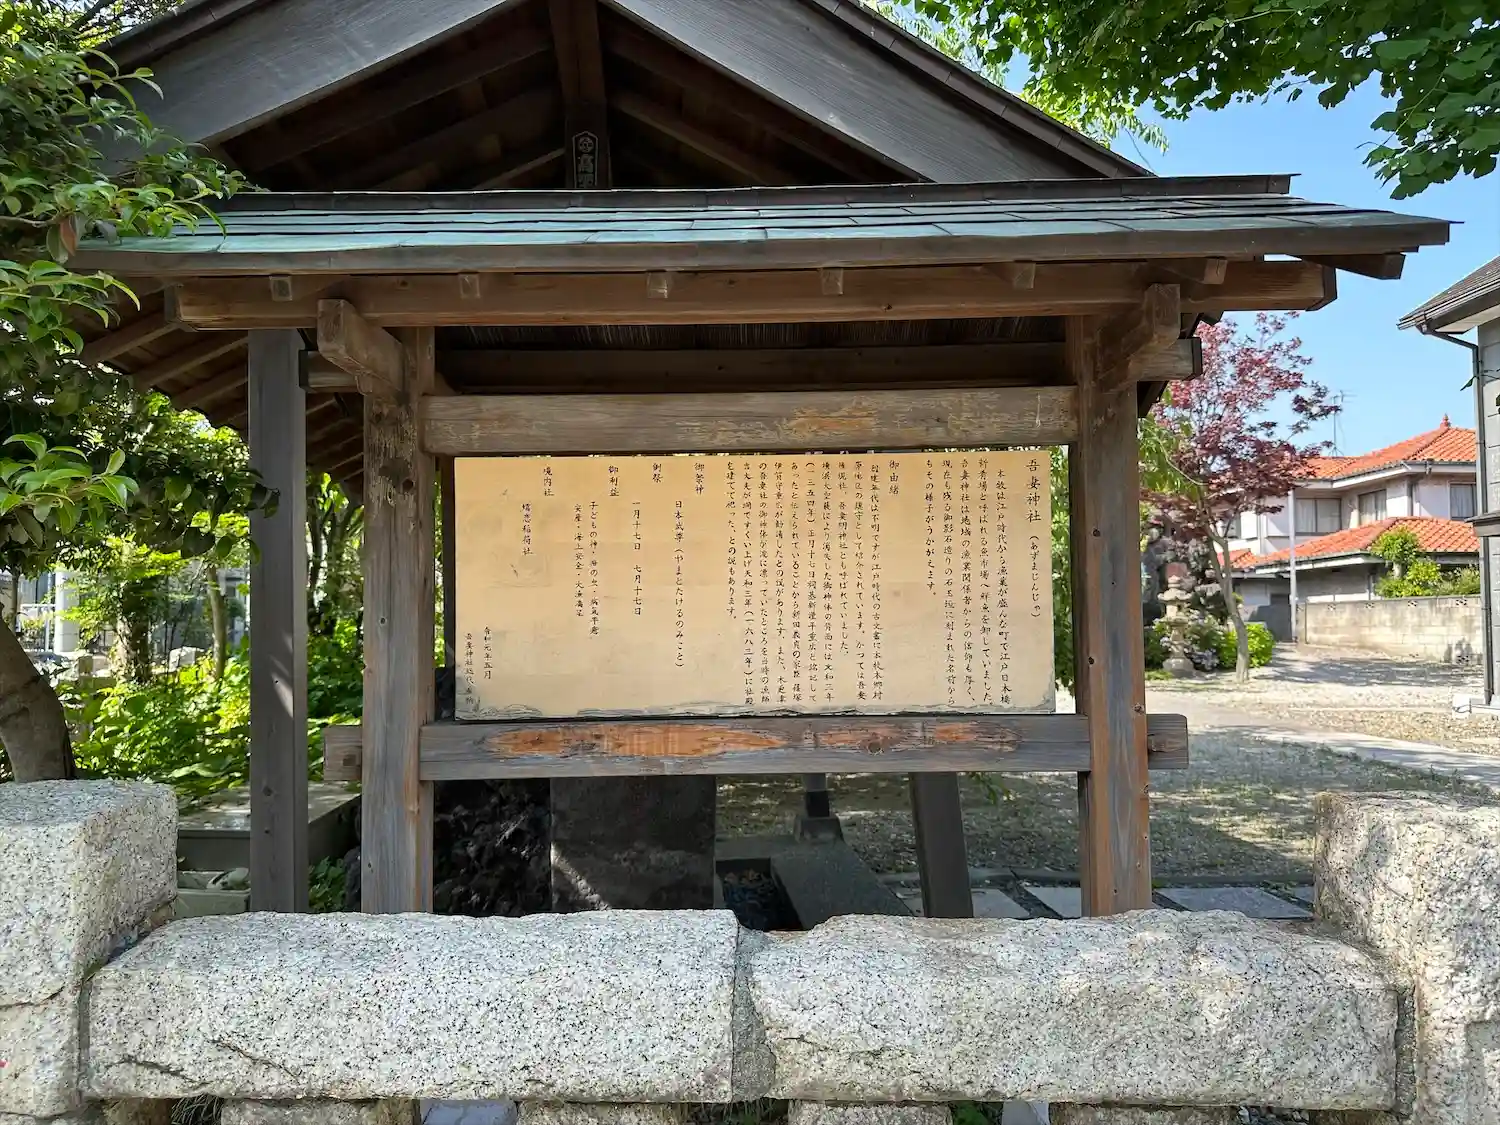 吾妻神社（あずまじんじゃ）
本牧は江戸時代から漁業が盛んな町で江戸日本橋
新肴場と呼ばれる魚市場へ鮮魚を卸していました。
吾妻神社は地域の漁業関係者からの信仰も厚く、
現在も残る御影石造りの石玉垣に刻まれた名前から
もその様子がうかがえます。
御由緒
創建年代は不明ですが江戸時代の古文書に本牧本郷村
原地区の鎮守として紹介されています。かつては吾妻
権現社、吾妻明神社とも呼ばれていました。
横浜大空襲により焼失した御神体の背面には文和三年
（一三五四年）正月十七日祠基新澄平重広と銘記して
あったと伝えられていることから新田義貞の家臣 篠塚
伊賀守重広が勧請したとの説があります。また、木更津
の吾妻社の御神体が海に漂っていたところを当時の漁師
吉太夫が網ですくい上げ天和三年（一六八三年）に社殿
を建てて祀った、との説もあります。
御祭神
日本武尊（やまとたけるのみこと）
例祭
一月十七日 七月十七日
御利益
子どもの神・疳の虫・病気平癒
安産・海上安全・大漁満足
境内社
稲荷社
令和元年五月
吾妻神社総代奉納